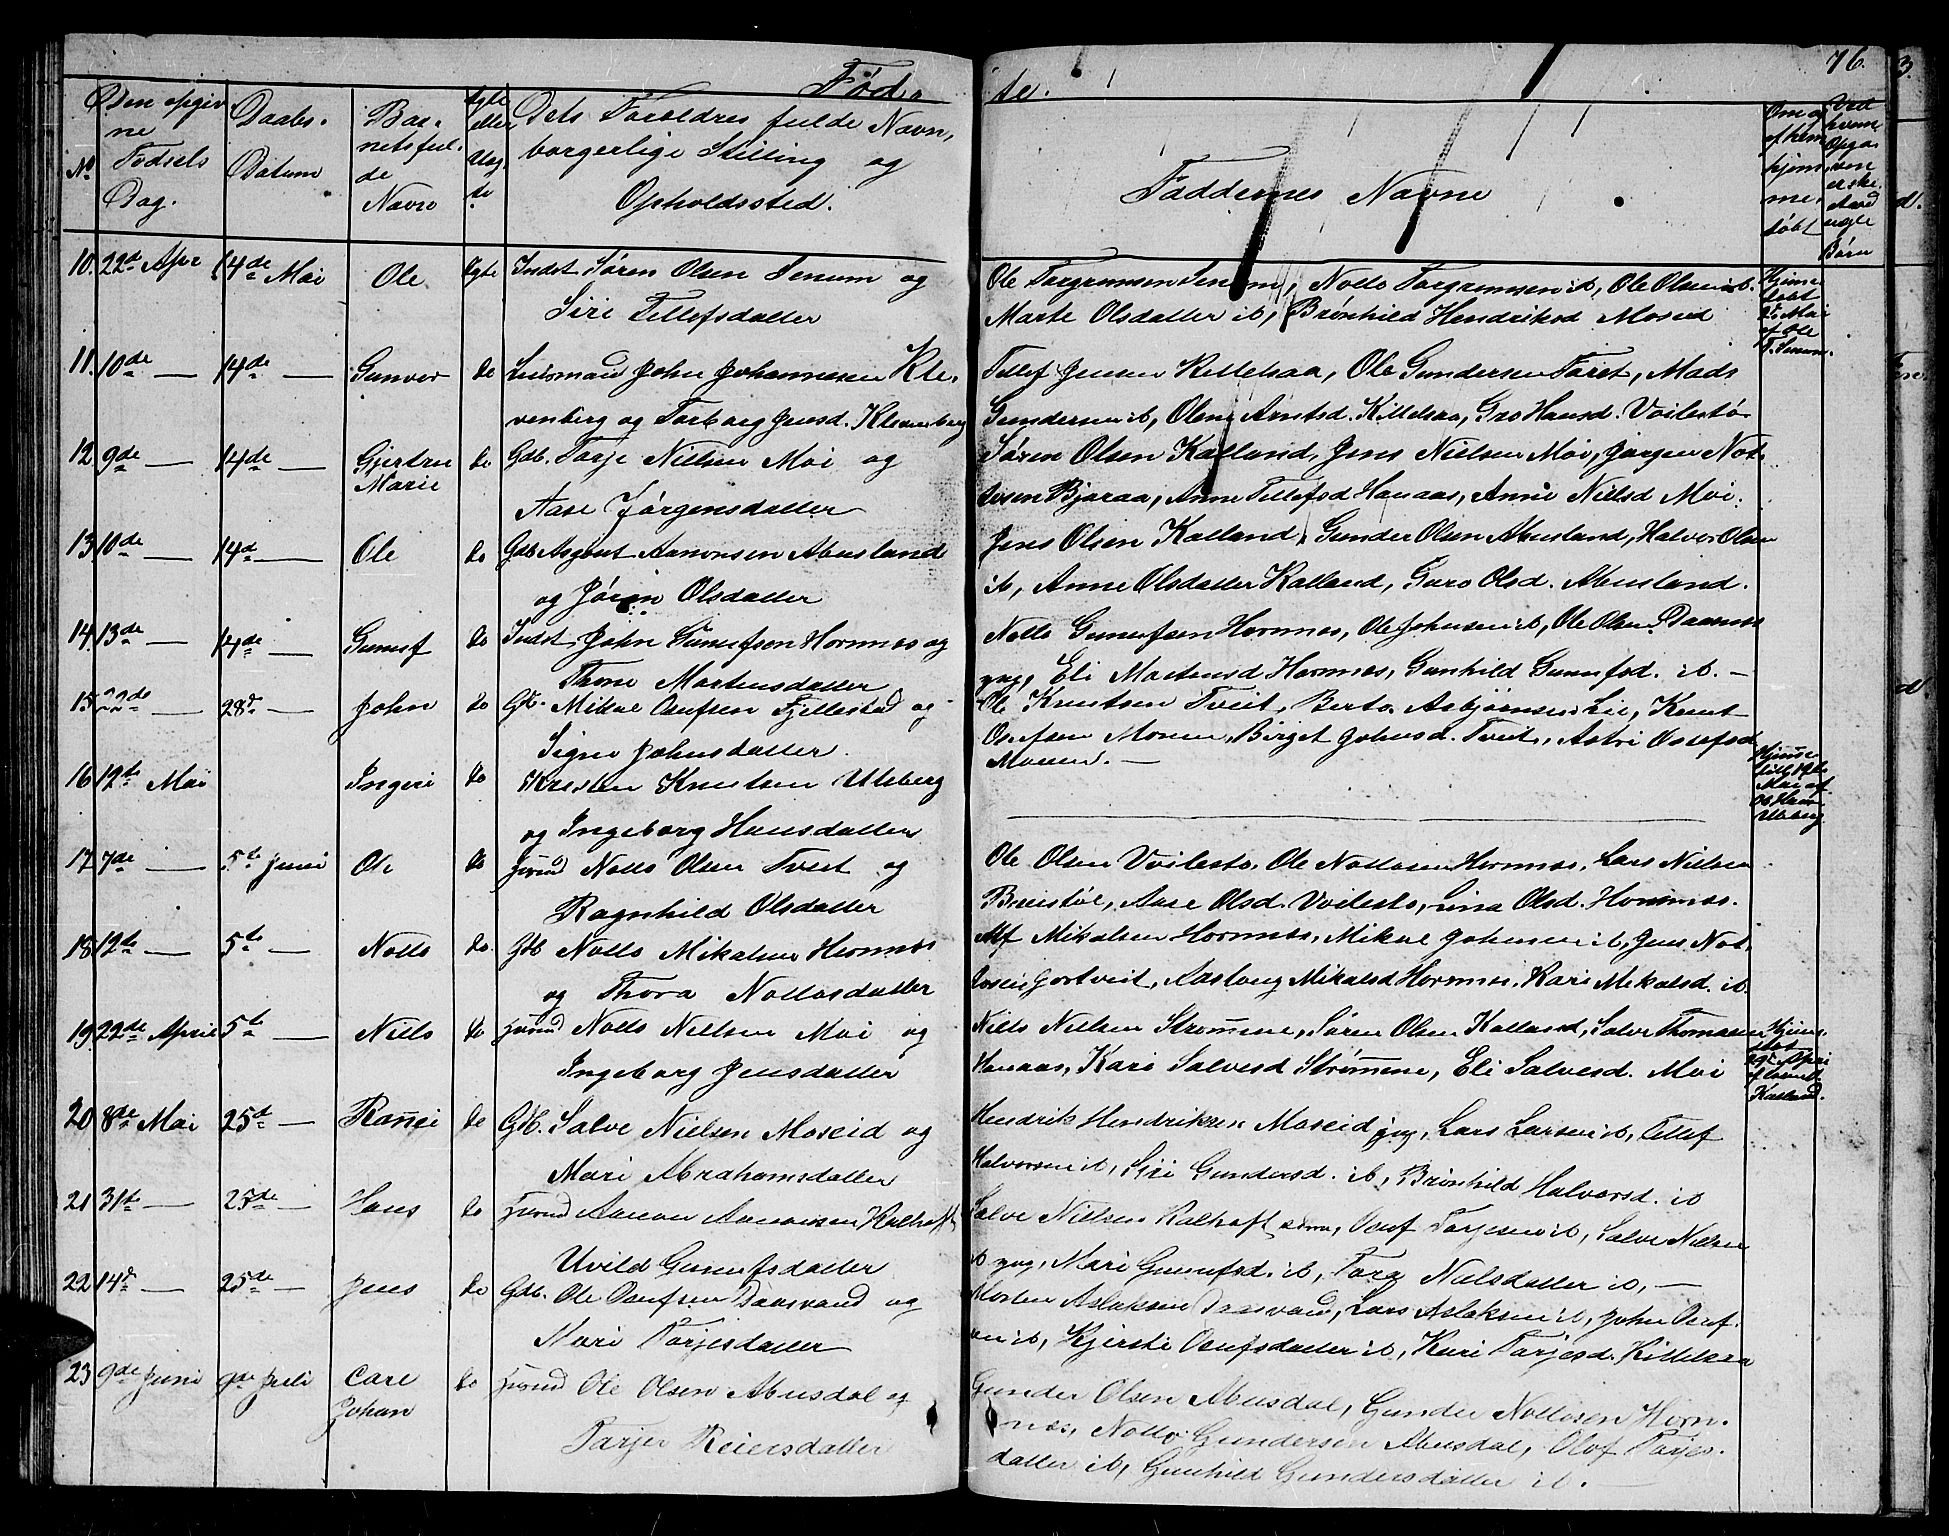 Fød- te. 76.
No
Den opgiv
ne
Fødsels
Dag.
Daabs-
Datum
Bar-
nets ful-
de
Navn
Ægte
eller
Uæg
te
Dets Forældres fulde Navn,
borgerlige Stilling og
Opholdssted.
Faddernes Navne
Om og
af hvem
hjem-
me-
døbt
Ved
hvem
Opga
ven
er ske
Børn
10. 22de Apr 14de Mai Ole Ægte Indst Søren Olsen Senum og
Siri Tellefsdatter
Ole Torgrimsen Senum, Nolls Torgrimsen ib, Ole Olsen ib.
Marte Olsdatter ib, Brønhild Hendriksd Moseid
Hjemme
døbt
Mai
af Ole
T. Senum.
11. 10de — 14de — Gunvor do Huusmand John Johannesen Kle-
venberg og Torborg Jensd. Klevenberg
Tellef Jensen Killehaa, Ole Gundersen Faret, Mads
Gundersen ib, Oleng Arntsd. Killeraa, Gro Hansd. Voilestø
12. 9de — 14de — Gjertru
Marie do Gdb. Tarje Nielsen Moi og
Aase Jørgensdatter
Søren Olsen Kalland, Jens Nielsen Moi, Jørgen Not-
tosen Bjoraa, Anne Tellefsd Hanaas, Anne Nielsd Moi.
13. 10de — 14d — Ole do Gdb Asgout Aanonsen Abusland
og Jørin Olsdatter
Jens Olsen Kalland, Gunder Olsen Abusland, Halvor Olsen
ib, Anne Olsdatter Kalland, Guro Olsd. Abusland.
14. 13de — 14de — Gunuf do Indst John Gunufsen Hornnes og
Thone Mortensdatter
Nolls Gunufsen Hornnes, Ole Johnsen ib, Ole Olsen
gug, Eli Mortensd Hornnes, Gunhild Gunufsd. ib. —
15 22de — 28d — John do Gb. Mikal Osufsen Fjellestad og
Signe Johnsdatter.
Ole Knutsen Tveit, Berto Asbjørnsen Lie, Knut
Osufsen Moren, Birget Johnsd. Tveit, Astri Osufsd
Moren. —
16 19te Mai Ingeri do Kresten Knutsen Uleberg
og Ingeborg Hansdatter
Hjemme
døbt 19de
Mai af
Uleberg
17 7de — 5te Juni Ole do Jnvnd Nolls Olsen Tveit og
Ragnhild Olsdatter
Ole Olsen Voilestø, Ole Nottosen Hornnes, Lars Nielsen
Breistøl, Aase Olsd. Voilestø, Lina Olsd. Hornnes.
18 12te — 5te — Nolls do. Gdb Nolls Mikalsen Hornnes
og Thora Nollosdatter
Alf Mikalsen Hornnes, Mikal Johnsen ib, Jens Not-
tosen Gortveit, Aasborg Mikalsd Hornnes, Kari Mikalsd. ib.
19 22de April 5te — Niels do Jnvnd Nolls Nielsen Moi og
Ingeborg Jensdatter
Niels Nielsen Strømene, Søren Olsen Kalland, Salve Thomasen
Hanaas, Kari Salvesd Strømene, Eli Salvesd. Moi
Hjem-
døbt
29de April
Kalland.
20 8de Mai 25d — Rangi do Gdb. Salve Nielsen Moseid og
Mari Abrahamsdatter
Hendrik Hendriksen Moseid gug, Lars Larsen ib, Tellef
Halvorsen ib, Siri Gundersd. ib, Brønhild Halvorsd. ib
21 31te — 25de — Hans do Jnvnd Aanon Aanonsen Kalhoft
Uvild Gunufsdatter
Salve Nielsen Kalhoft senr, Osuf Tarjesen ib, Salve Nielsen
ib gug, Mari Gunufsd. ib, Targ Nielsdatter ib, —
22 14d — 25de — Jens do Gdb. Ole Osufsen Daasvand og
Mari Tarjesdatter
Morten Aslaksen Daasvand, Lars Aslaksen ib, John Osuf-
sen ib, Kjersti Osufsdatter ib, Kari Tarjesd. Killeraa
23 9de Juni 9de Juli Carl
Johan do Jnvnd Ole Olsen Abusdal og
Tarjer Reiersdatter
Gunder Olsen Abusdal, Gunder Nollosen Horn-
nes, Nolls Gundersen Abusdal, Olof Tarjes-
datter ib, Gunhild Gundersdatter ib. —